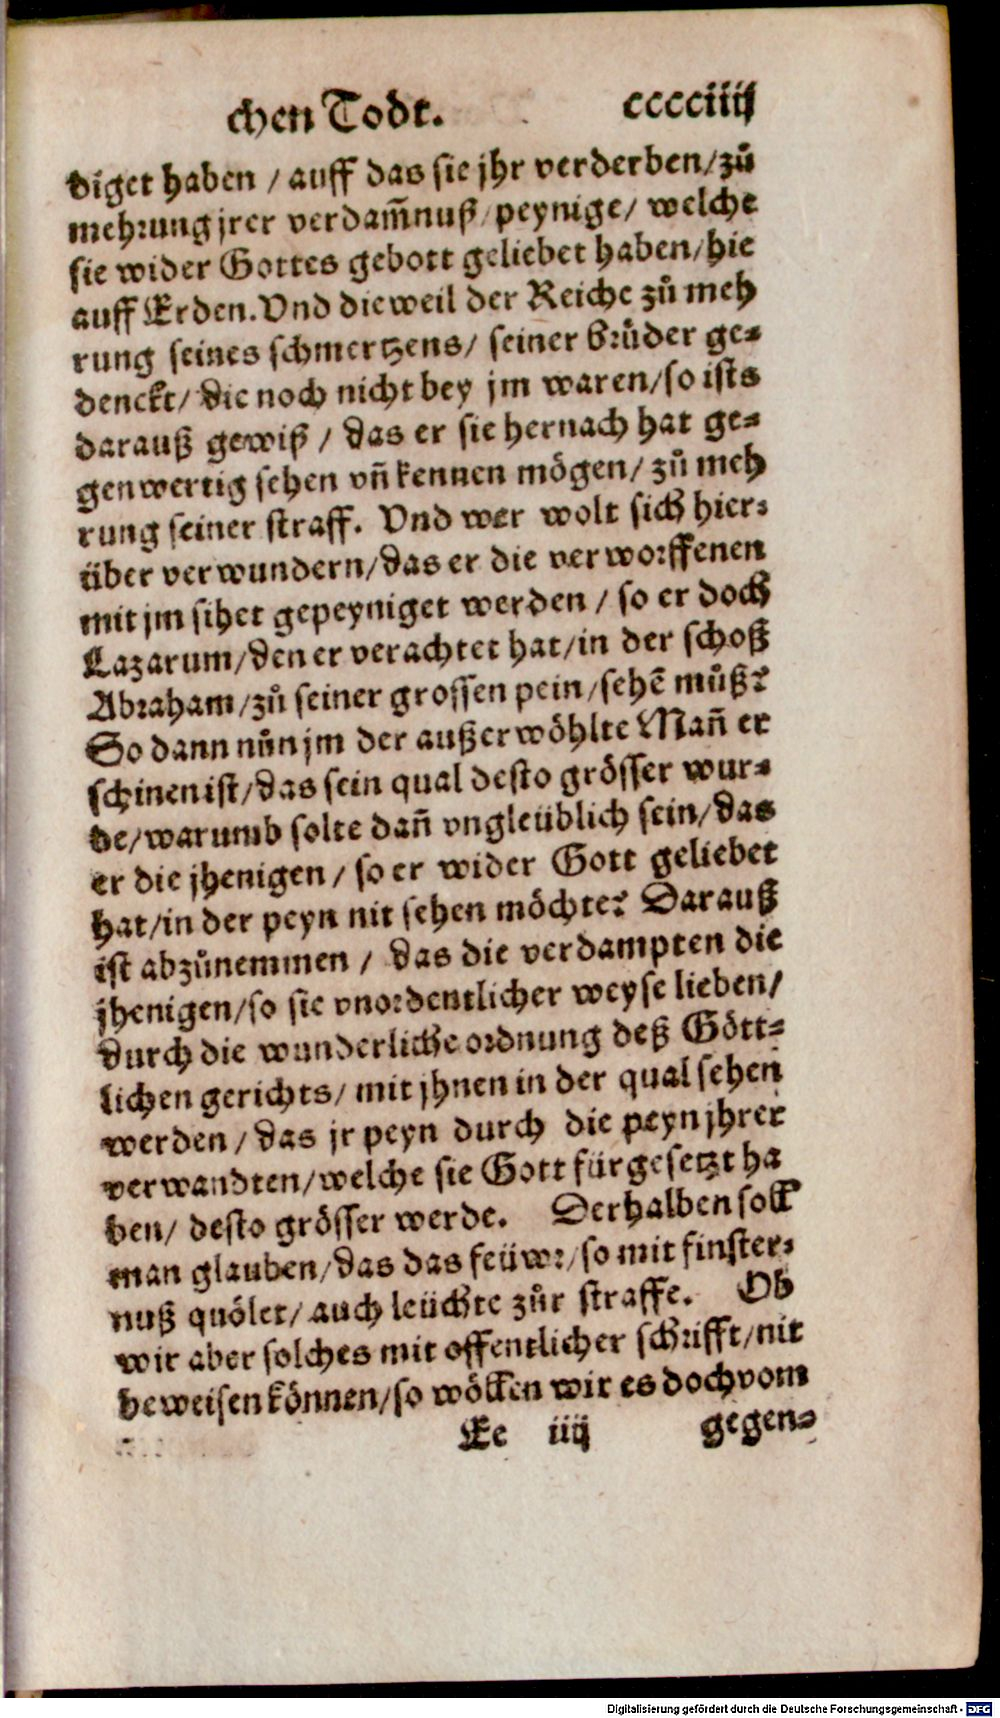 chen Todt. cccciiij
diget haben / auff das sie jhr verderben/zů
mehrung jrer verdam̃nuß/peynige/ welche
sie wider Gottes gebott geliebet haben/hie
auff Erden. Vnd dieweil der Reiche zů meh
rung seines schmertzens/ seiner brůder ge-
denckt/ die noch nicht bey jm waren/so ists
darauß gewiß / das er sie hernach hat ge-
genwertig sehen vñ kennen mögen/ zů meh
rung seiner straff. Vnd wer wolt sich hier-
über verwundern/das er die verworffenen
mit jm sihet gepeyniget werden / so er doch
Lazarum/den er verachtet hat/in der schoß
Abraham/zů seiner grossen pein/sehẽ můß?
So dann nůn jm der außerwöhlte Mañ er
schinen ist/das sein qual desto grösser wur-
de/warumb solte dañ vngleüblich sein/das
er die jhenigen/ so er wider Gott geliebet
hat/in der peyn nit sehen möchte? Darauß
ist abzůnemmen / das die verdampten die
jhenigen/so sie vnordentlicher weyse lieben/
durch die wunderliche ordnung deß Gött-
lichen gerichts/ mit jhnen in der qual sehen
werden/ das jr peyn durch die peyn jhrer
verwandten/welche sie Gott fürgesetzt ha
ben/ desto grösser werde. Derhalben soll
man glauben/das das feüwr/so mit finster-
nuß quölet/ auch leüchte zůr straffe. Ob
wir aber solches mit offentlicher schrifft/nit
beweisen können/so wöllen wir es doch vom
Ee iiij gegen-
Digitalisierung gefördert durch die Deutsche Forschungsgemeinschaft - DFG